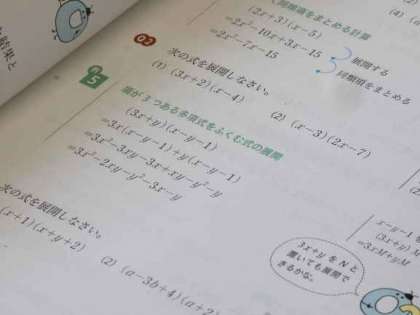 同類項をまとめる計算
(2x+3)(x-5)
=2x²-10x+3x-15
=2x²-7x-15
展開する
同類項をまとめる
Q2 次の式を展開しなさい。
(1) (3x+2)(x-4)
(2) (x-3)(2x-7)
例5 項が3つある多項式をふくむ式の展開
(3x+y)(x-y-1)
=3x(x-y-1)+y(x-y-1)
=3x²-3xy-3x+xy-y²-y
=3x²-2xy-y²-3x-y
次の式を展開しなさい。
(x+1)(x+y+2)
(2) (a-3b+4)(a+2
x-y-1を
(3x+y)M
=3xM+yM
3x+yをNと
置いても展開で
きるかな。